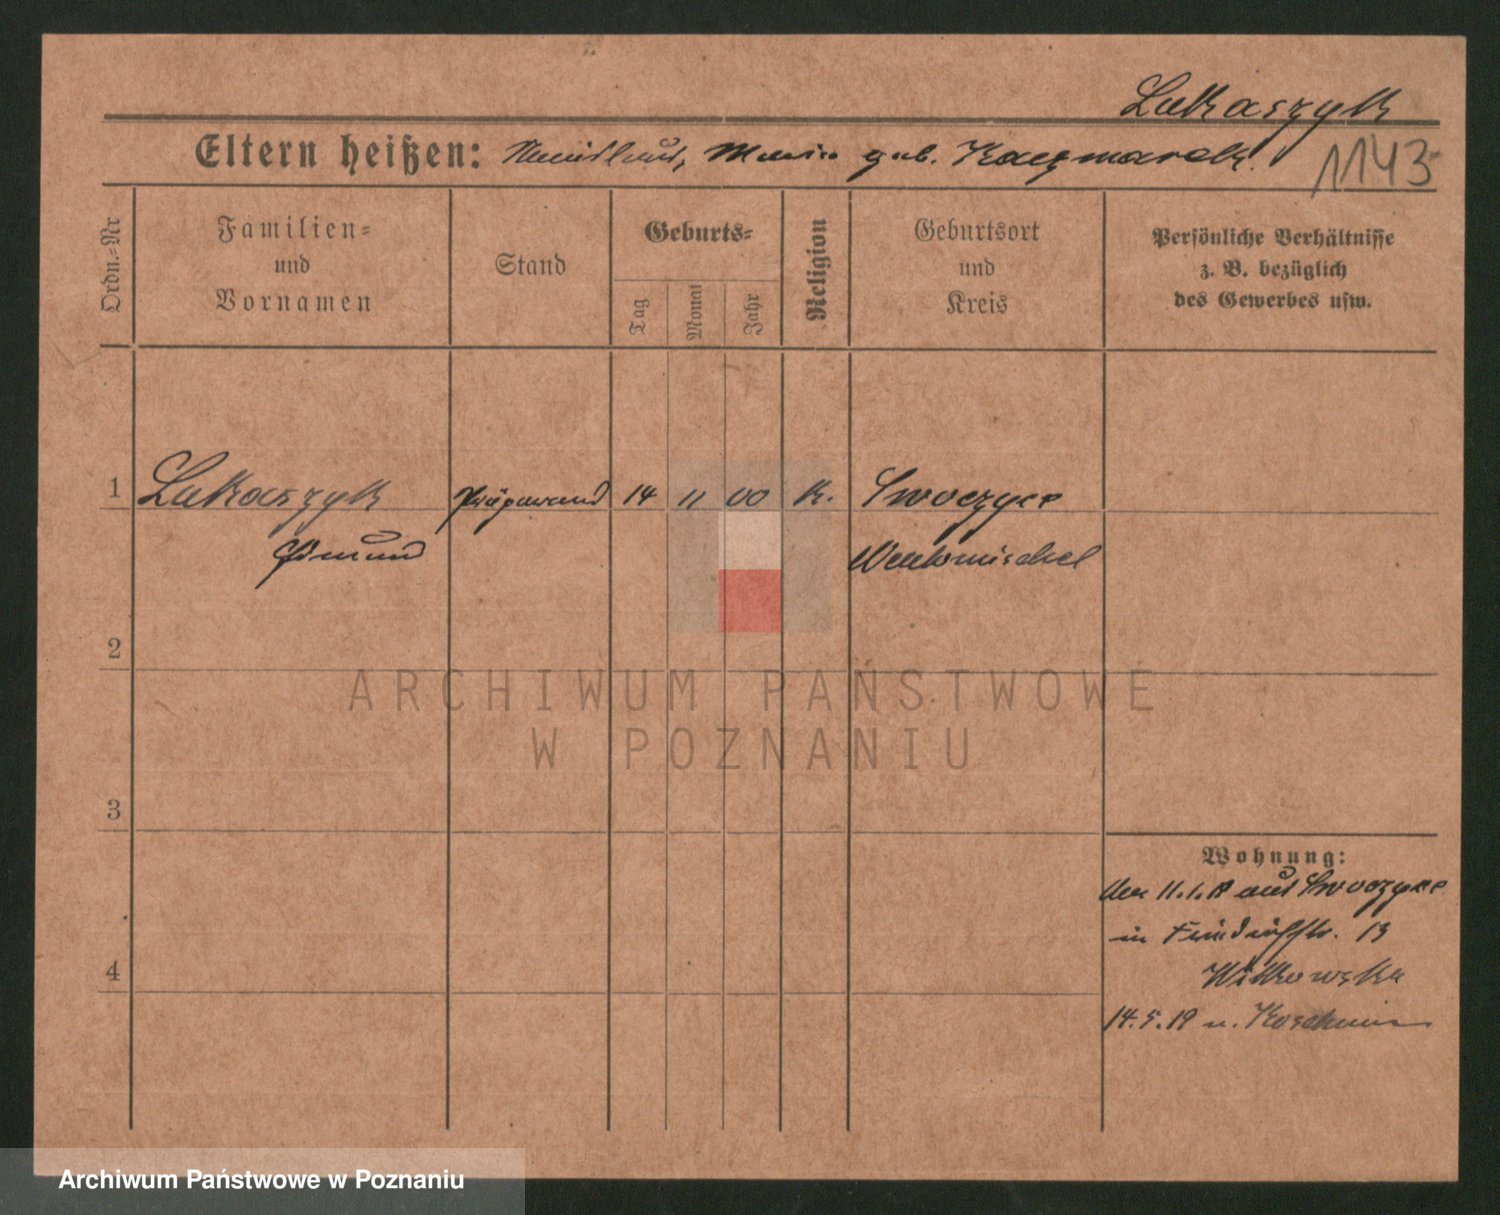 Lukaszyk
Eltern heißen: Maria geb. Kaczmarek.
1143
Ordn.=Nr
Familien=
und
Vornamen
Stand
Geburts=
Tag
Monat
Jahr
Religion
Geburtsort
und
Kreis
Persönliche Verhältnisse
z. B. bezüglich
des Gewerbes usw.
1 Lukaszyk Präparand 14 11 00 K.
Edmund
2
3
4
Wohnung:
11.1.18 aus
in Friedrichstr. 13
Witkowska
14.5.19 n. Koschmin
ARCHIWUM PAŃSTWOWE
W POZNANIU
Archiwum Państwowe w Poznaniu